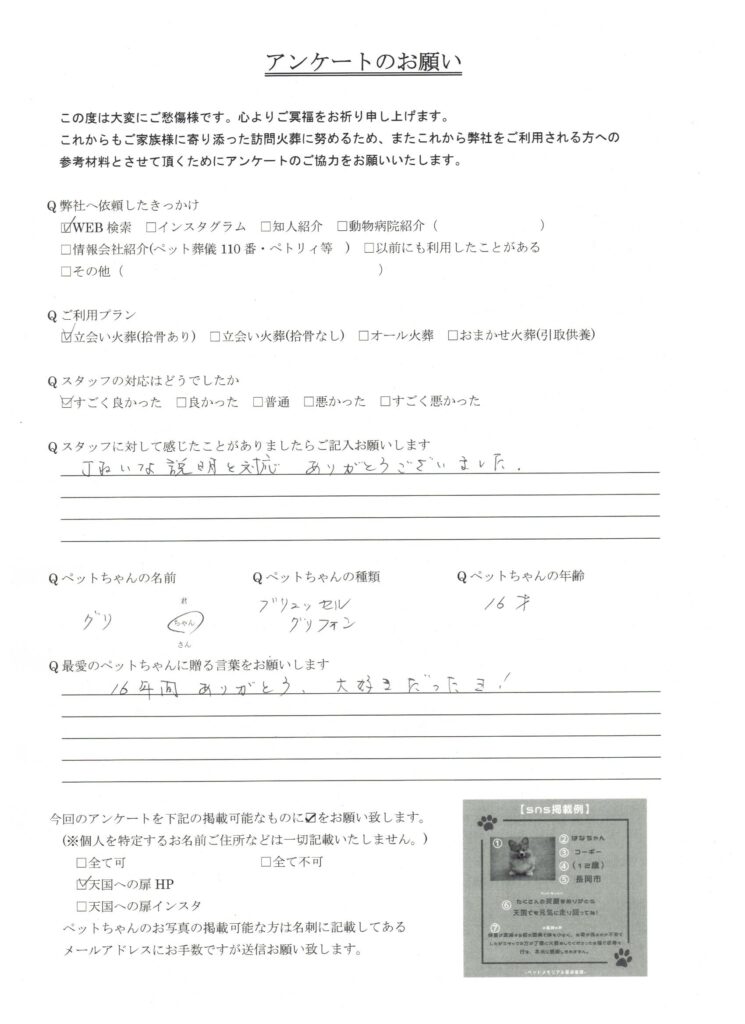 アンケートのお願い
この度は大変にご愁傷様です。心よりご冥福をお祈り申し上げます。
これからもご家族様に寄り添った訪問火葬に努めるため、またこれから弊社をご利用される方への
参考材料とさせて頂くためにアンケートのご協力をお願いいたします。
Q 弊社へ依頼したきっかけ
☑WEB 検索 □インスタグラム □知人紹介 □動物病院紹介（ ）
□情報会社紹介(ペット葬儀 110 番・ペトリィ等 ) □以前にも利用したことがある
□その他（ ）
Q ご利用プラン
☑立会い火葬(拾骨あり) □立会い火葬(拾骨なし) □オール火葬 □おまかせ火葬(引取供養)
Q スタッフの対応はどうでしたか
☑すごく良かった □良かった □普通 □悪かった □すごく悪かった
Q スタッフに対して感じたことがありましたらご記入お願いします
丁ねいな説明と対応 ありがとうございました.
Q ペットちゃんの名前 Q ペットちゃんの種類 Q ペットちゃんの年齢
君
グリ ちゃん ブリュッセル グリフォン 16才
さん
Q 最愛のペットちゃんに贈る言葉をお願いします
16年間 ありがとう、大好きだったよ!
今回のアンケートを下記の掲載可能なものに☑をお願い致します。
(※個人を特定するお名前ご住所などは一切記載いたしません。)
□全て可 □全て不可
☑天国への扉 HP
□天国への扉インスタ
ペットちゃんのお写真の掲載可能な方は名刺に記載してある
メールアドレスにお手数ですが送信お願い致します。
【sns掲載例】
①
② はなちゃん
③ コーギー
④（12歳）
⑤ 長岡市
⑥ たくさんの笑顔をありがとう
天国でも元気に走り回ってね!
⑦